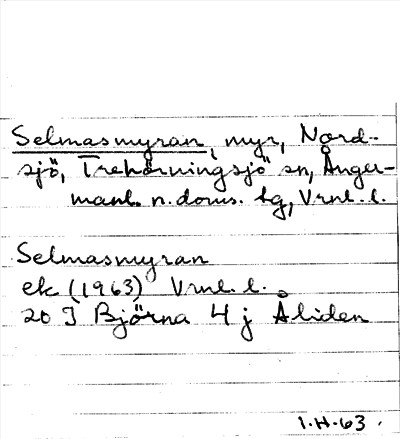 Selmasmyran, myr, Nord-
sjö, Trehörningsjö sn, Ånger-
manl. n. doms. tg, Vrnl. l.
Selmasmyran
ek (1963) Vrnl. l.
20 I Björna 4 j Åliden
I.H-63.